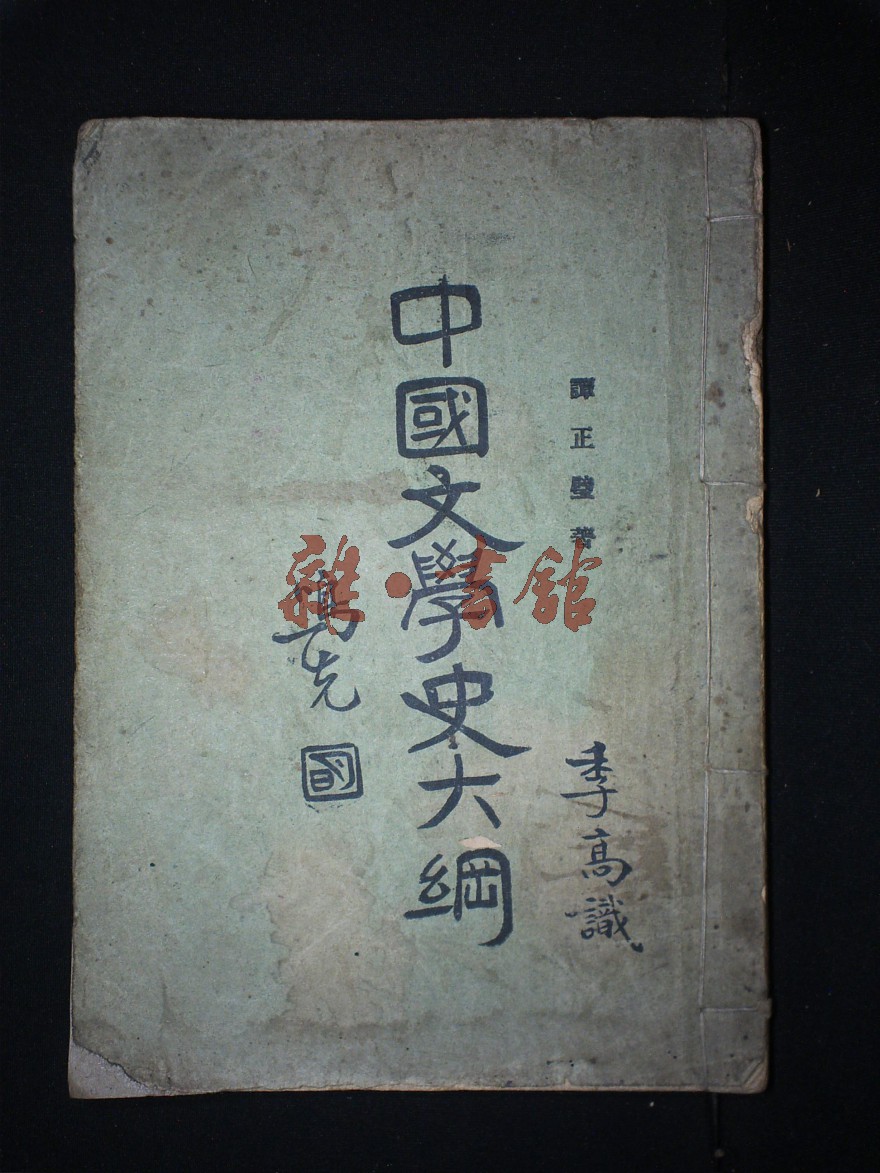 譚正璧著
季高識
中國文學史大綱
雜·書館